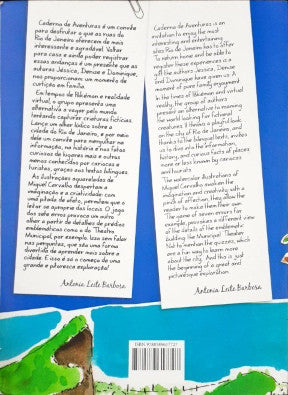 Caderno de Aventuras é um convite
para desfrutar o que ruas do
Rio de Janeiro oferecem de mais
interessante e agradável. Voltar
para casa e ainda poder registrar
essas andanças é um presente que as
autoras Jéssica, Denise e Dominique,
nos proporcionam um momento de
curtição em família.
Em tempos de Pokémon e realidade
virtual, o grupo apresenta uma
alternativa a vagar pelo mundo
tentando capturar criaturas fictícias.
Lança um olhar lúdico sobre a
cidade do Rio de Janeiro, e por meio
dele um convite para mergulhar na
informação, na história e nos fatos
curiosos de lugares mais e outros
menos conhecidos por cariocas e
turistas, graças aos textos bilíngues.
As ilustrações aquareladas de
Miguel Carvalho despertam a
imaginação e a criatividade com
uma pitada de afeto, permitem que o
leitor se aproprie dos locais. O jogo
dos sete erros provoca um outro
olhar a partir de detalhes de prédios
emblemáticos como o do Theatro
Municipal, por exemplo. Isso sem falar
nas perguntas, que são uma forma
divertida de aprender mais sobre a
cidade. E isso é só o começo de uma
grande e pitoresca exploração!
Antonia Leite Barbosa
Caderno de Aventuras is an
invitation to enjoy the most
interesting and entertaining
sites Rio de Janeiro has to offer.
To return home and be able to
register these experiences is a
gift the authors Jéssica, Denise
and Dominique have given us. A
moment of pure family enjoyment.
In the times of Pokémon and virtual
reality, the group of authors
present an alternative to roaming
the world looking for fictional
creatures. It throws a playful look
on the city of Rio de Janeiro, and
thanks to the bilingual texts, invites
us to dive into the information,
history, and curious facts of places
more or less known by cariocas
and tourists.
The watercolor illustrations of
Miguel Carvalho awaken the
imagination and creativity with a
pinch of affection, they allow the
reader to make them their own.
The game of seven errors for
example, provokes a different view
of the details of the emblematic
building the Municipal Theater.
Not to mention the quizzes, which
are a fun way to learn more
about the city. And this is just
the beginning of a great and
picturesque exploration!
Antonia Leite Barbosa